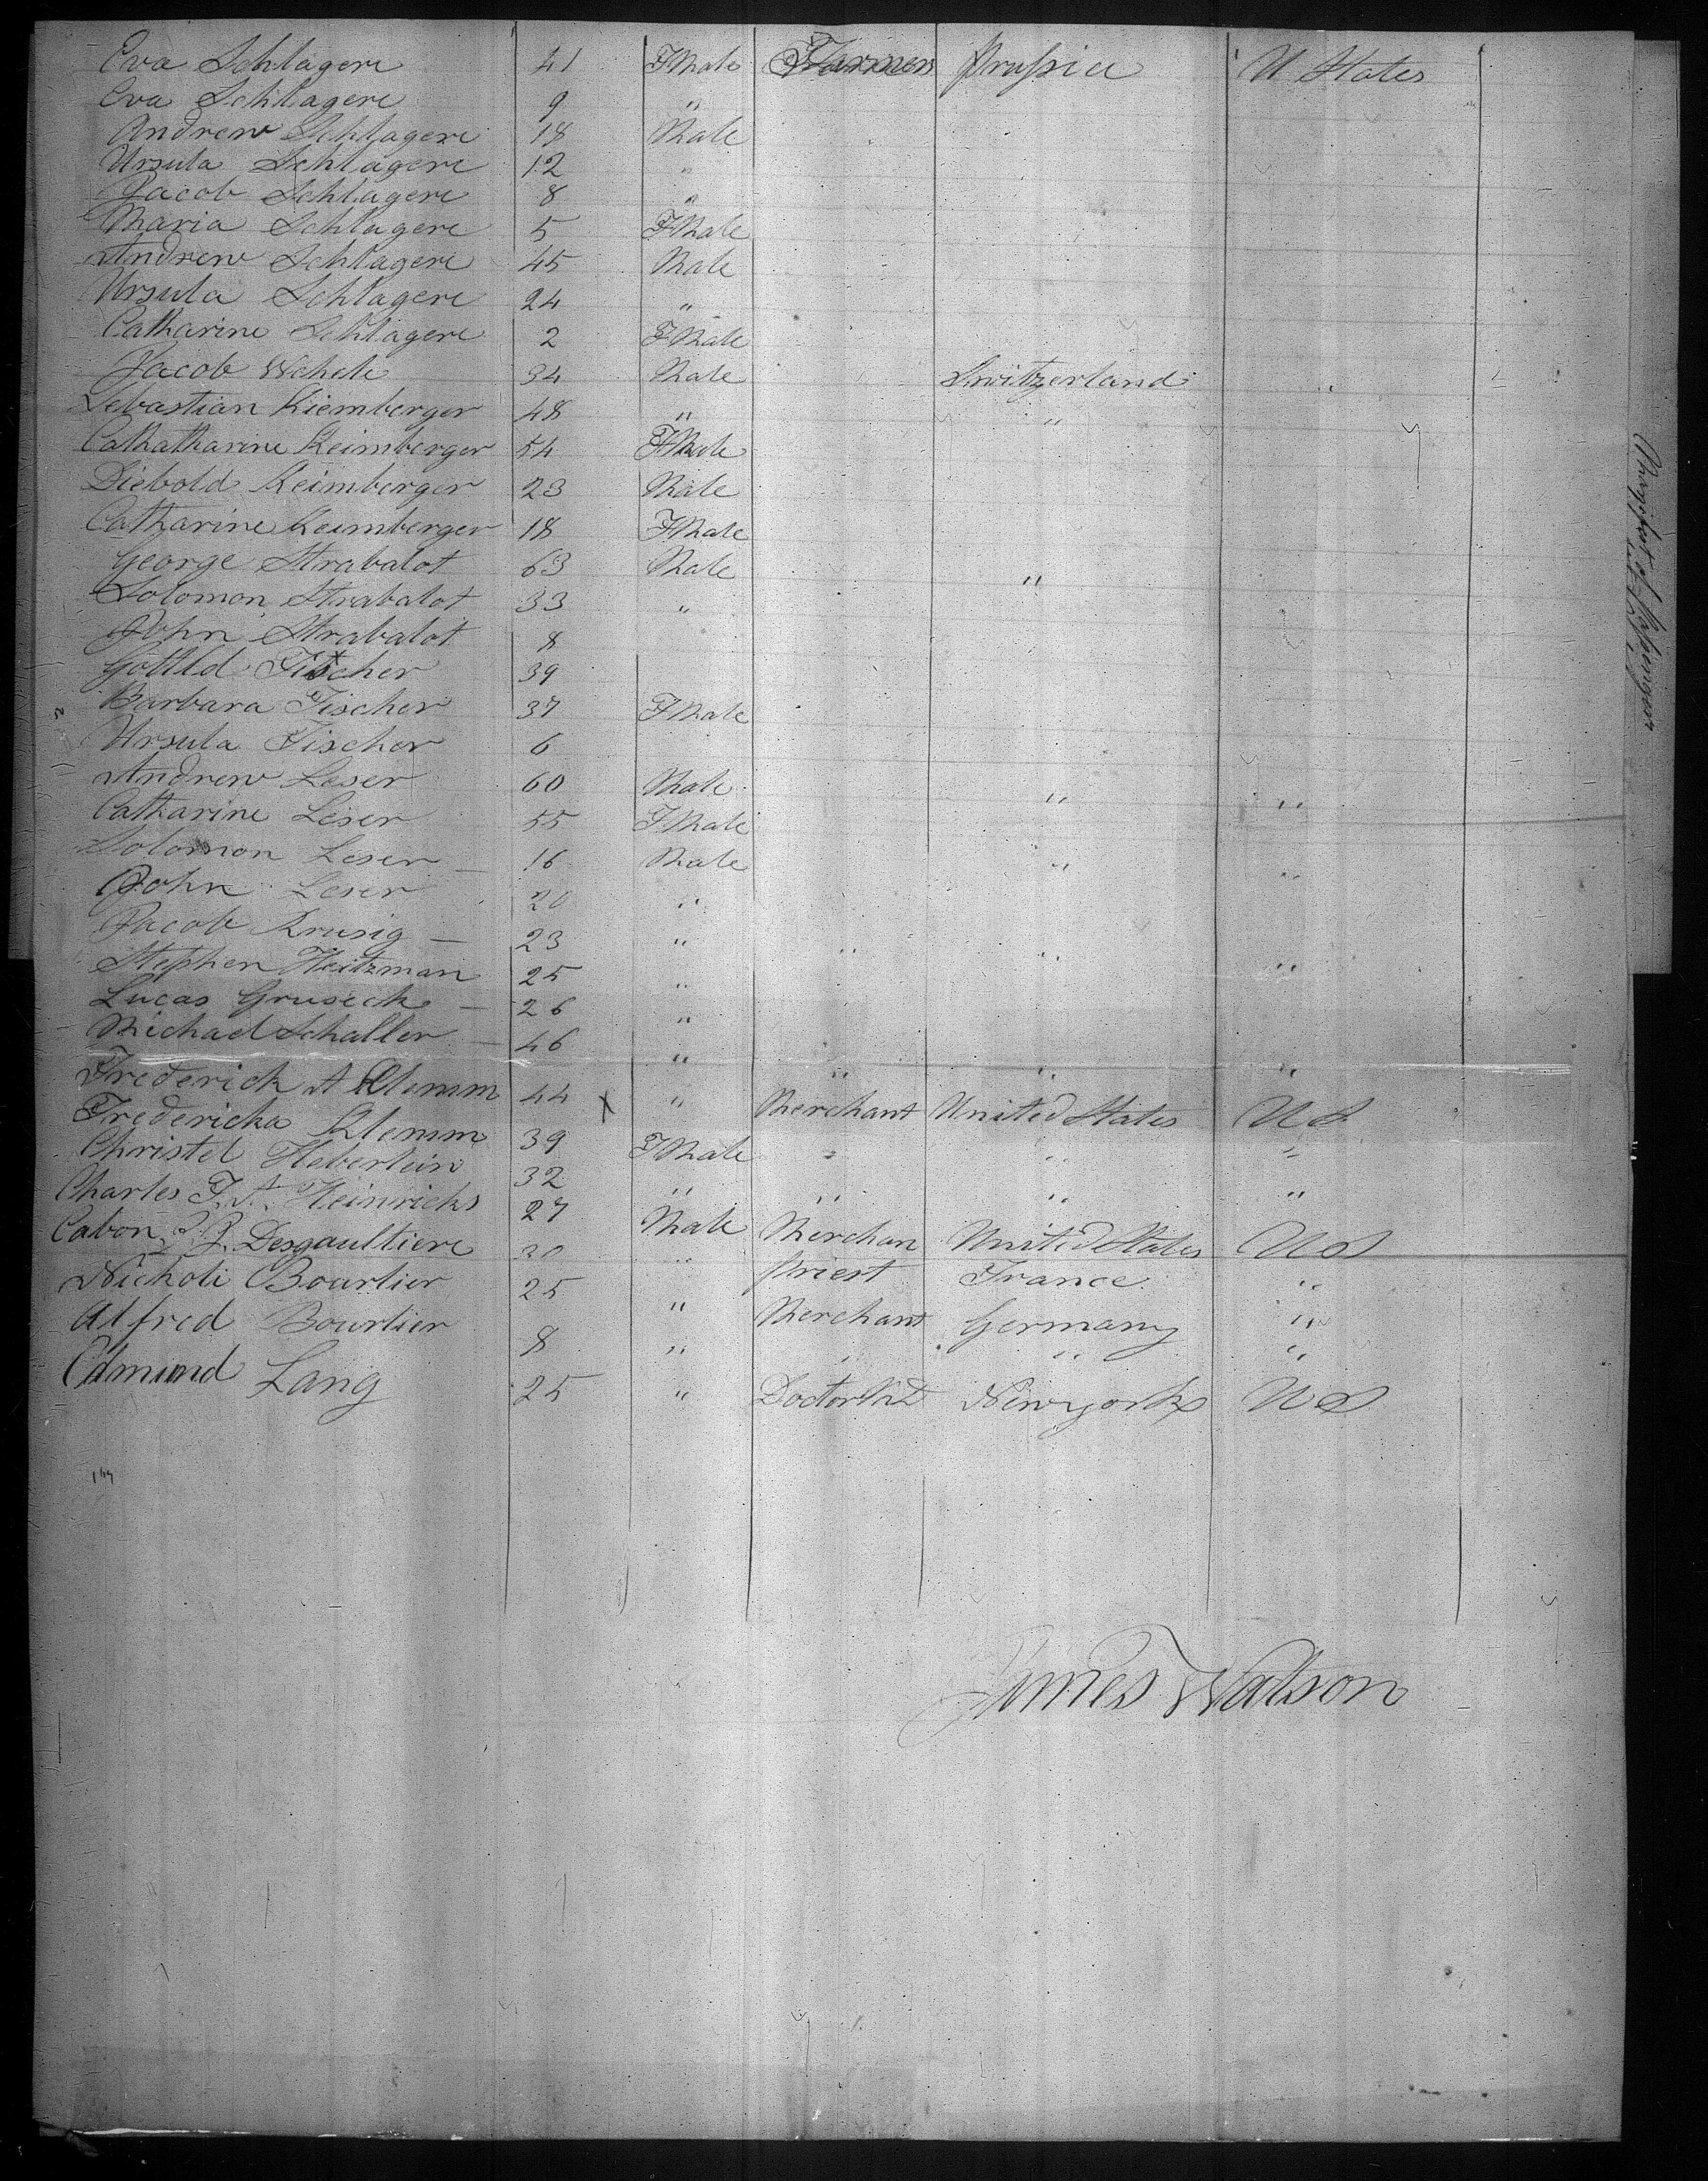 Eva Schlagere 41 FMale Farmers Prussia U States
Eva Schlagere 9 "
Andrew Schlagere 18 Male
Ursula Schlagere 12 "
Jacob Schlagere 8 "
Maria Schlagere 5 FMale
Andrew Schlagere 45 Male
Ursula Schlagere 24 "
Catharine Schlagere 2 FMale
Jacob Wehele 34 Male Switzerland "
Sebastian Kiemberger 48 " "
Cathatharine Keimberger 54 FMale
Diebold Keimberger 23 Male
Catharine Keimberger 18 FMale
George Strabalot 63 Male "
Solomon Strabalot 33 "
John Strabalot 8
Gottld Fischer 39
Barbara Fischer 37 FMale
Ursula Fischer 6
Andrew Leser 60 Male " "
Catharine Leser 55 FMale
Solomon Leser 16 Male " "
John Leser 20 "
Jacob Krusig 23 " " " "
Stephen Heitzman 25 "
Lucas Gruseck 26 "
Michael Schaller 46 " " " "
Frederick A Klemm 44 X " Merchant United States U S
Fredericka Klemm 39 FMale " " "
Christel Heberlein 32 " " " "
Charles F. A. Heinrichs 27 Male Merchan United States U S
Cabon Desgaultiere 30 " Priest France "
Nicholi Bourlier 25 " Merchant Germany "
Alfred Bourlier 8 " " " "
Edmund Lang 25 " Doctor Md New york U S
James Watson